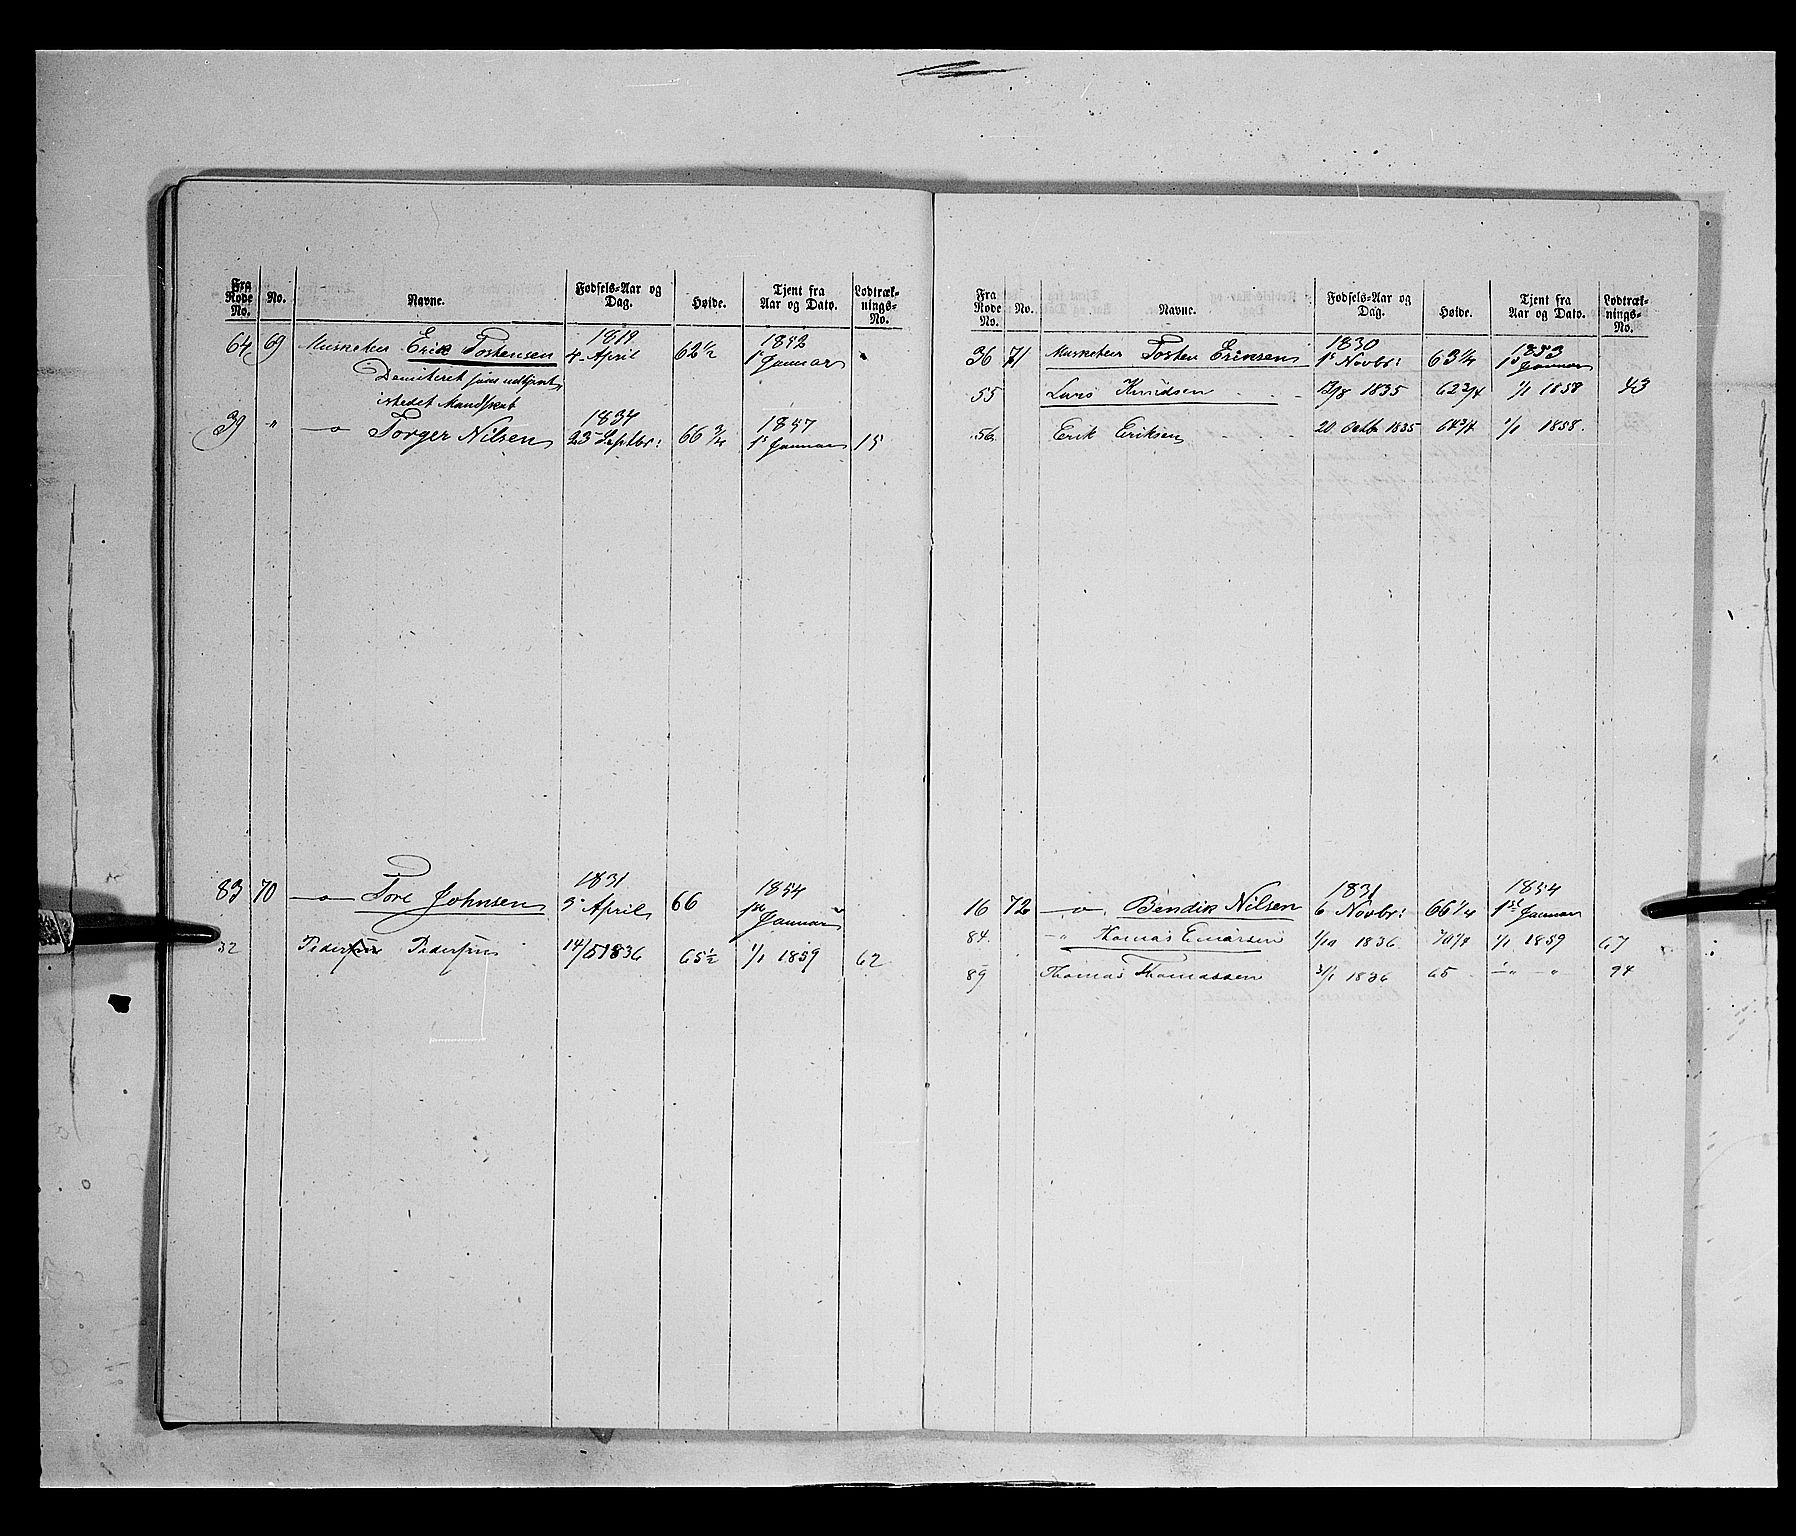 Fra Rode No. | No. | Navne. | Fødsels-Aar og Dag. | Høide. | Tjent fra Aar og Dato. | Lodtræk-nings-No.
64 69 Musketeer Erik Tostensen 1819 4 April 62 1/2 1842 1 Januar
Demiteret som udtjent
istedet Mandskab
39 " —o— Torger Nilsen 1834 23 Septbr: 66 3/4 1857 1 Januar 15
83 70 —o— Tore Johnsen 1831 5 April 66 1854 1ste Januar
32 Pedersen Pedersen 14/5 1836 65 1/2 1/1 1859 62
Fra Rode No. | No. | Navne. | Fødsels-Aar og Dag. | Høide. | Tjent fra Aar og Dato. | Lodtræk-nings-No.
36 71 Musketeer Tosten Eriksen 1830 1 Novbr: 63 1/4 1853 1 Januar
55 Lars Knudsen 1835 62 3/4 1/1 1858 43
56 Erik Eriksen 20 Octb 1835 64 3/4 1/1 1858.
16 72 —o— Bendik Nilsen 1831 6 Novbr: 66 1/4 1854 1ste Januar
84. —" Thomas Einarsen 1/10 1836 70 1/4 1/1 1859 67
89 Thomas Thomassen 3/1 1836 65 —"— " 94